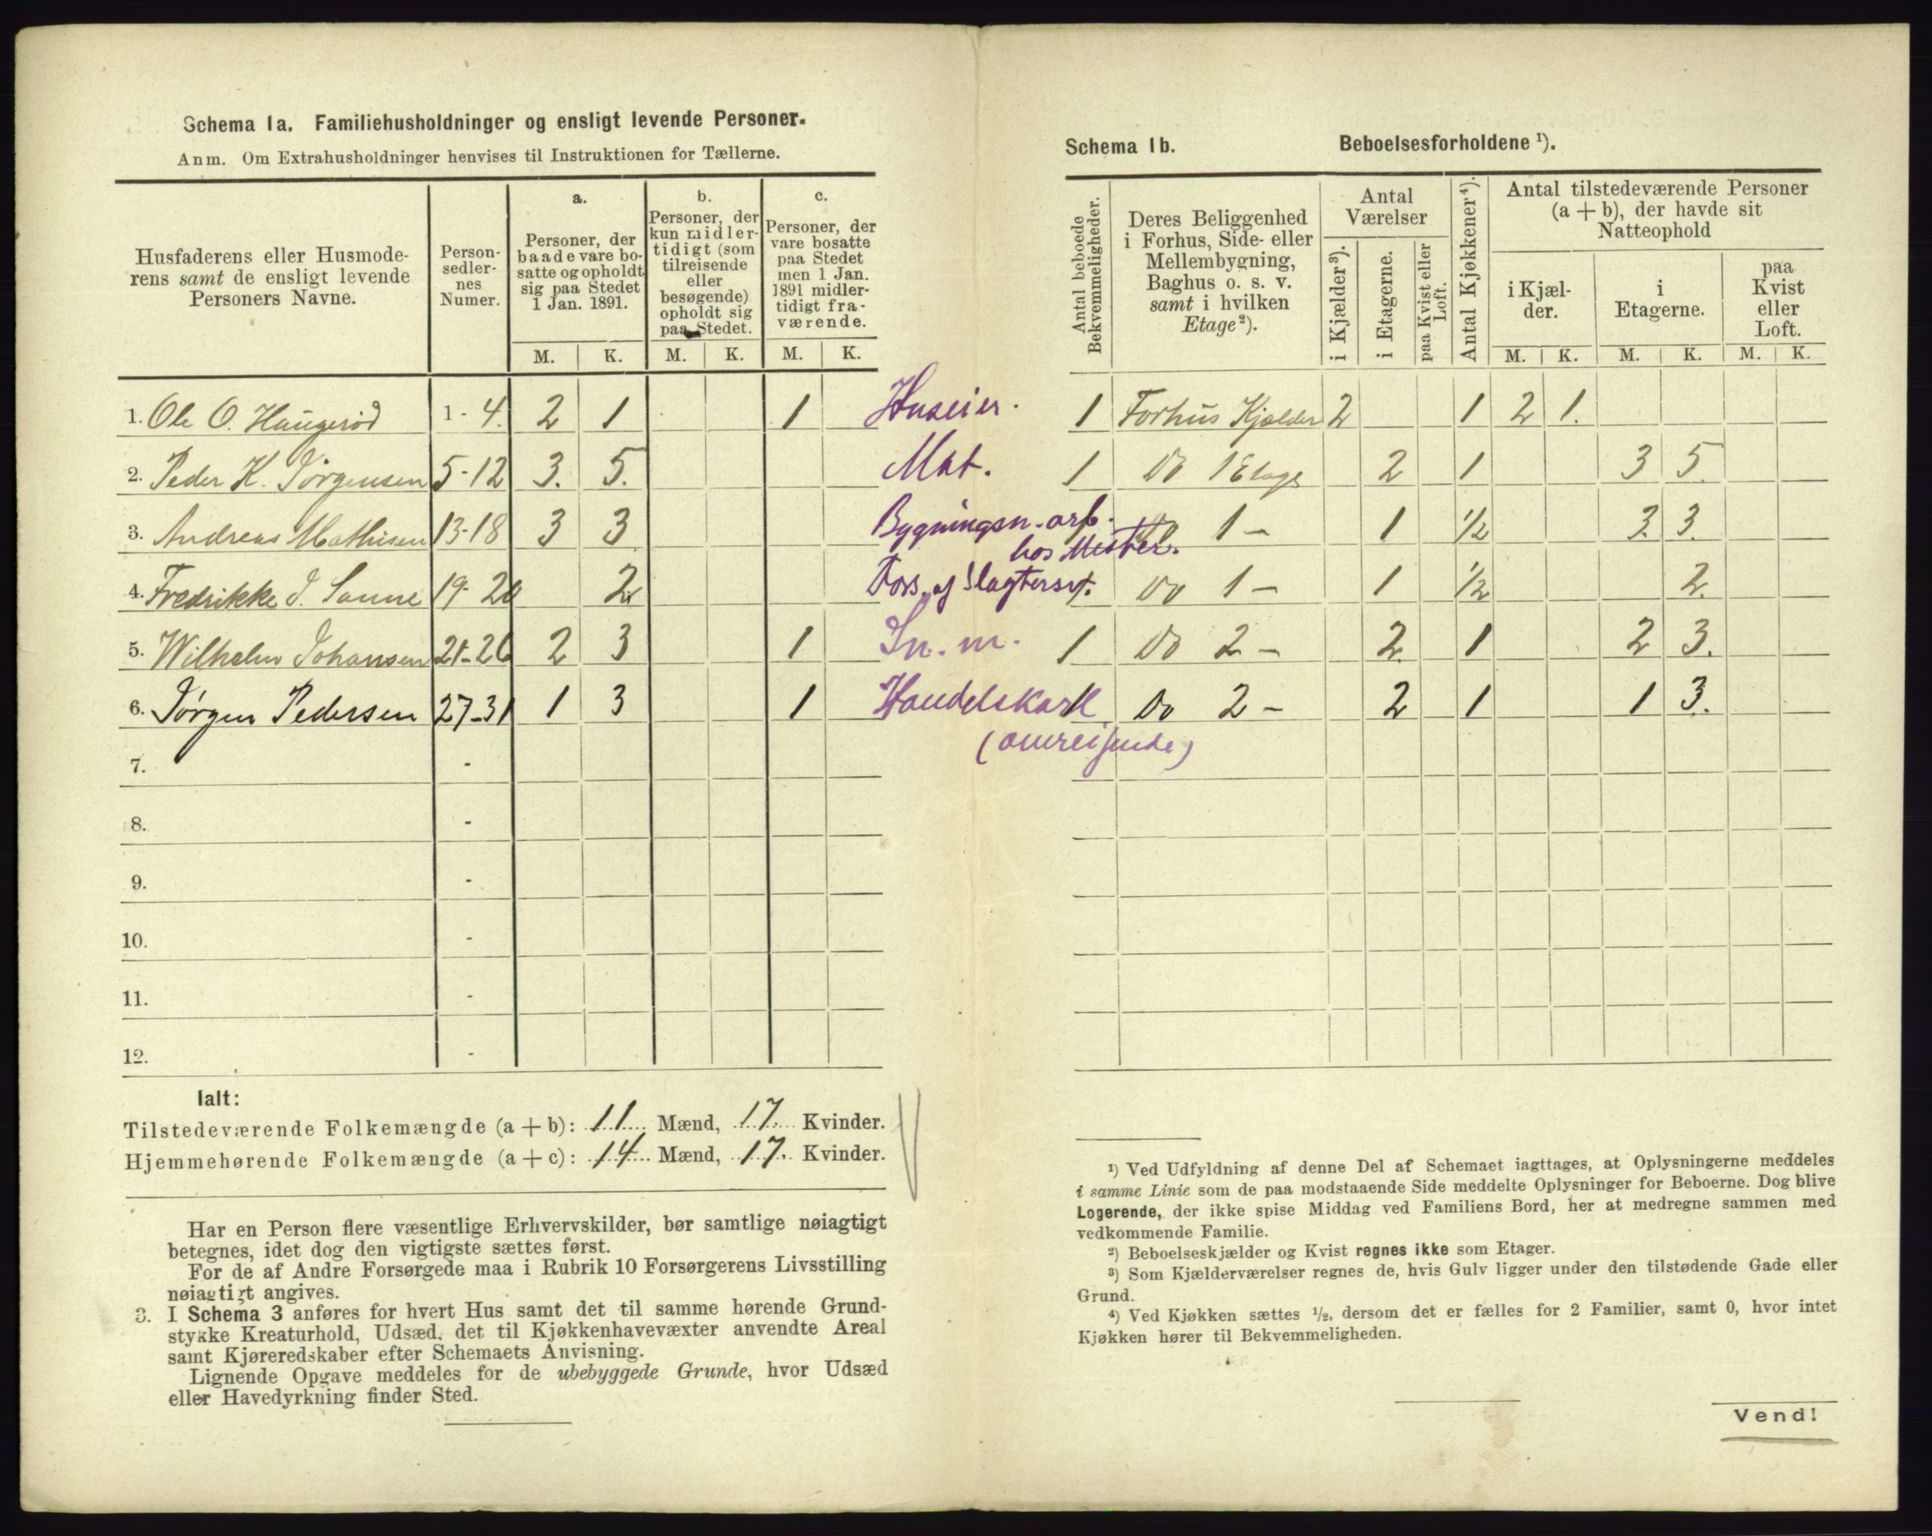 Schema 1a. Familiehusholdninger og ensligt levende Personer.
Anm. Om Extrahusholdninger henvises til Instruktionen for Tællerne.
Husfaderens eller Husmoderens samt de ensligt levende Personers Navne.
Personsedlernes Numer.
a.
Personer, der baade vare bosatte og opholdt sig paa Stedet 1 Jan. 1891.
b.
Personer, der kun midlertidigt (som tilreisende eller besøgende) opholdt sig paa Stedet.
c.
Personer, der vare bosatte paa Stedet men 1 Jan. 1891 midlertidigt fraværende.
M. K. M. K. M. K.
1. Ole O. Haugerød 1-4. 2 1 1 Huseier.
2. Peder K. Jørgensen 5-12 3. 5. Mat.
3. Andreas Mathisen 13-18 3 3 Bygningsn. arb. hos Mester.
4. Fredrikke J. Sanne 19-20 2 Fors. af Slagtersv.
5. Wilhelm Johansen 21-26 2 3 1 Sn. m.
6. Jørgen Pedersen 27-31 1 3 1 Handelskarl
(omreisende)
7. -
8. -
9. -
10. -
11. -
12. -
Ialt:
Tilstedeværende Folkemængde (a + b): 11 Mænd, 17 Kvinder.
Hjemmehørende Folkemængde (a + c): 14 Mænd, 17. Kvinder.
Har en Person flere væsentlige Erhvervskilder, bør samtlige nøiagtigt
betegnes, idet dog den vigtigste sættes først.
For de af Andre Forsørgede maa i Rubrik 10 Forsørgerens Livsstilling
nøiagtigt angives.
3. I Schema 3 anføres for hvert Hus samt det til samme hørende Grund-
stykke Kreaturhold, Udsæd, det til Kjøkkenhavevæxter anvendte Areal
samt Kjøreredskaber efter Schemaets Anvisning.
Lignende Opgave meddeles for de ubebyggede Grunde, hvor Udsæd
eller Havedyrkning finder Sted.
Schema 1b. Beboelsesforholdene ¹).
Antal beboede Bekvemmeligheder.
Deres Beliggenhed i Forhus, Side- eller Mellembygning, Baghus o. s. v. samt i hvilken Etage ²).
Antal Værelser
i Kjælder ³).
i Etagerne.
paa Kvist eller Loft.
Antal Kjøkkener ⁴).
Antal tilstedeværende Personer (a + b), der havde sit Natteophold
i Kjælder.
i Etagerne.
paa Kvist eller Loft.
M. K. M. K. M. K.
1 Forhus Kjælder 2 1 2 1.
1 Do 1 Etage 2 1 3 5.
1 Do 1 - 1 ½ 3. 3.
Do 1 - 1 ½ 2.
1 Do 2 - 2. 1 2 3.
1 Do 2 - 2 1 1 3.
¹) Ved Udfyldning af denne Del af Schemaet iagttages, at Oplysningerne meddeles
i samme Linie som de paa modstaaende Side meddelte Oplysninger for Beboerne. Dog blive
Logerende, der ikke spise Middag ved Familiens Bord, her at medregne sammen med
vedkommende Familie.
²) Beboelseskjælder og Kvist regnes ikke som Etager.
³) Som Kjælderværelser regnes de, hvis Gulv ligger under den tilstødende Gade eller
Grund.
⁴) Ved Kjøkken sættes ½, dersom det er fælles for 2 Familier, samt 0, hvor intet
Kjøkken hører til Bekvemmeligheden.
Vend!